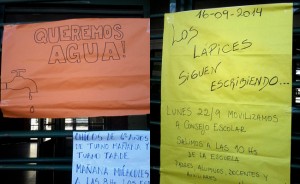 QUEREMOS
AGUA!
CHICOS DE 6º AÑOS
DE TURNO MAÑANA Y
TURNO TARDE
MAÑANA MIÉRCOLES
A LAS
16-09-2014
LOS
LAPICES
SIGUEN
ESCRIBIENDO...
LUNES 22/9 MOVILIZAMOS
A CONSEJO ESCOLAR
SALIMOS A LAS 10 HS
DE LA ESCUELA
ALUMNOS, DOCENTES Y